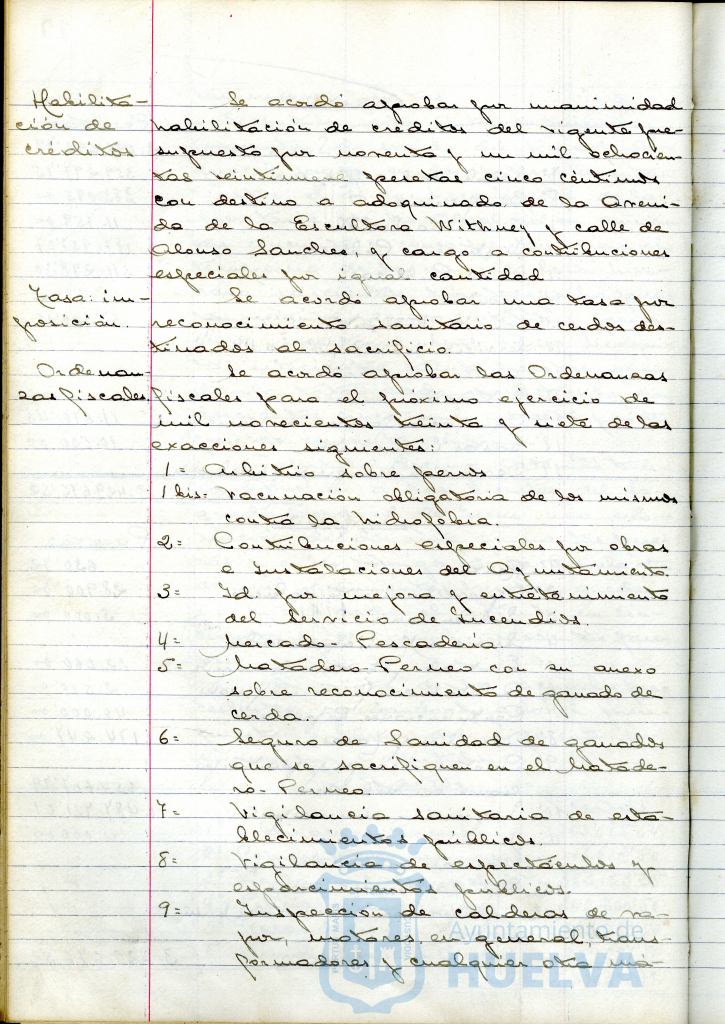 Habilita-
ción de
créditos
Se acordó aprobar por unanimidad
habilitación de créditos del vigente pre-
supuesto por noventa y un mil ochocien-
tas veintinueve pesetas cinco céntimos
con destino a adoquinado de la Aveni-
da de la Escultora Withney y calle de
Alonso Sanches, y cargo a contribuciones
especiales por igual cantidad
Tasa: im-
posición.
Se acordó aprobar una tasa por
reconocimiento sanitario de cerdos des-
tinados al sacrificio.
Ordenan-
zas fiscales
Se acordó aprobar las Ordenanzas
fiscales para el próximo ejercicio de
mil novecientos treinta y siete de las
exacciones siguientes:
1= Arbitrio sobre perros
1 bis= Vacunación obligatoria de los mismos
contra la hidrofobia.
2= Contribuciones especiales por obras
e Instalaciones del Ayuntamiento.
3= Id por mejora y entretenimiento
del Servicio de Incendios.
4= Mercado-Pescadería.
5= Matadero-Perneo con su anexo
sobre reconocimiento de ganado de
cerda.
6= Seguro de Sanidad de ganados
que se sacrifiquen en el Matade-
ro-Perneo.
7= Vigilancia sanitaria de esta-
blecimientos públicos.
8= Vigilancia de espectáculos y
esparcimientos públicos.
9= Inspección de calderas de va-
por, motores en general, trans-
formadores y cualquier otra má-
Ayuntamiento de
HUELVA